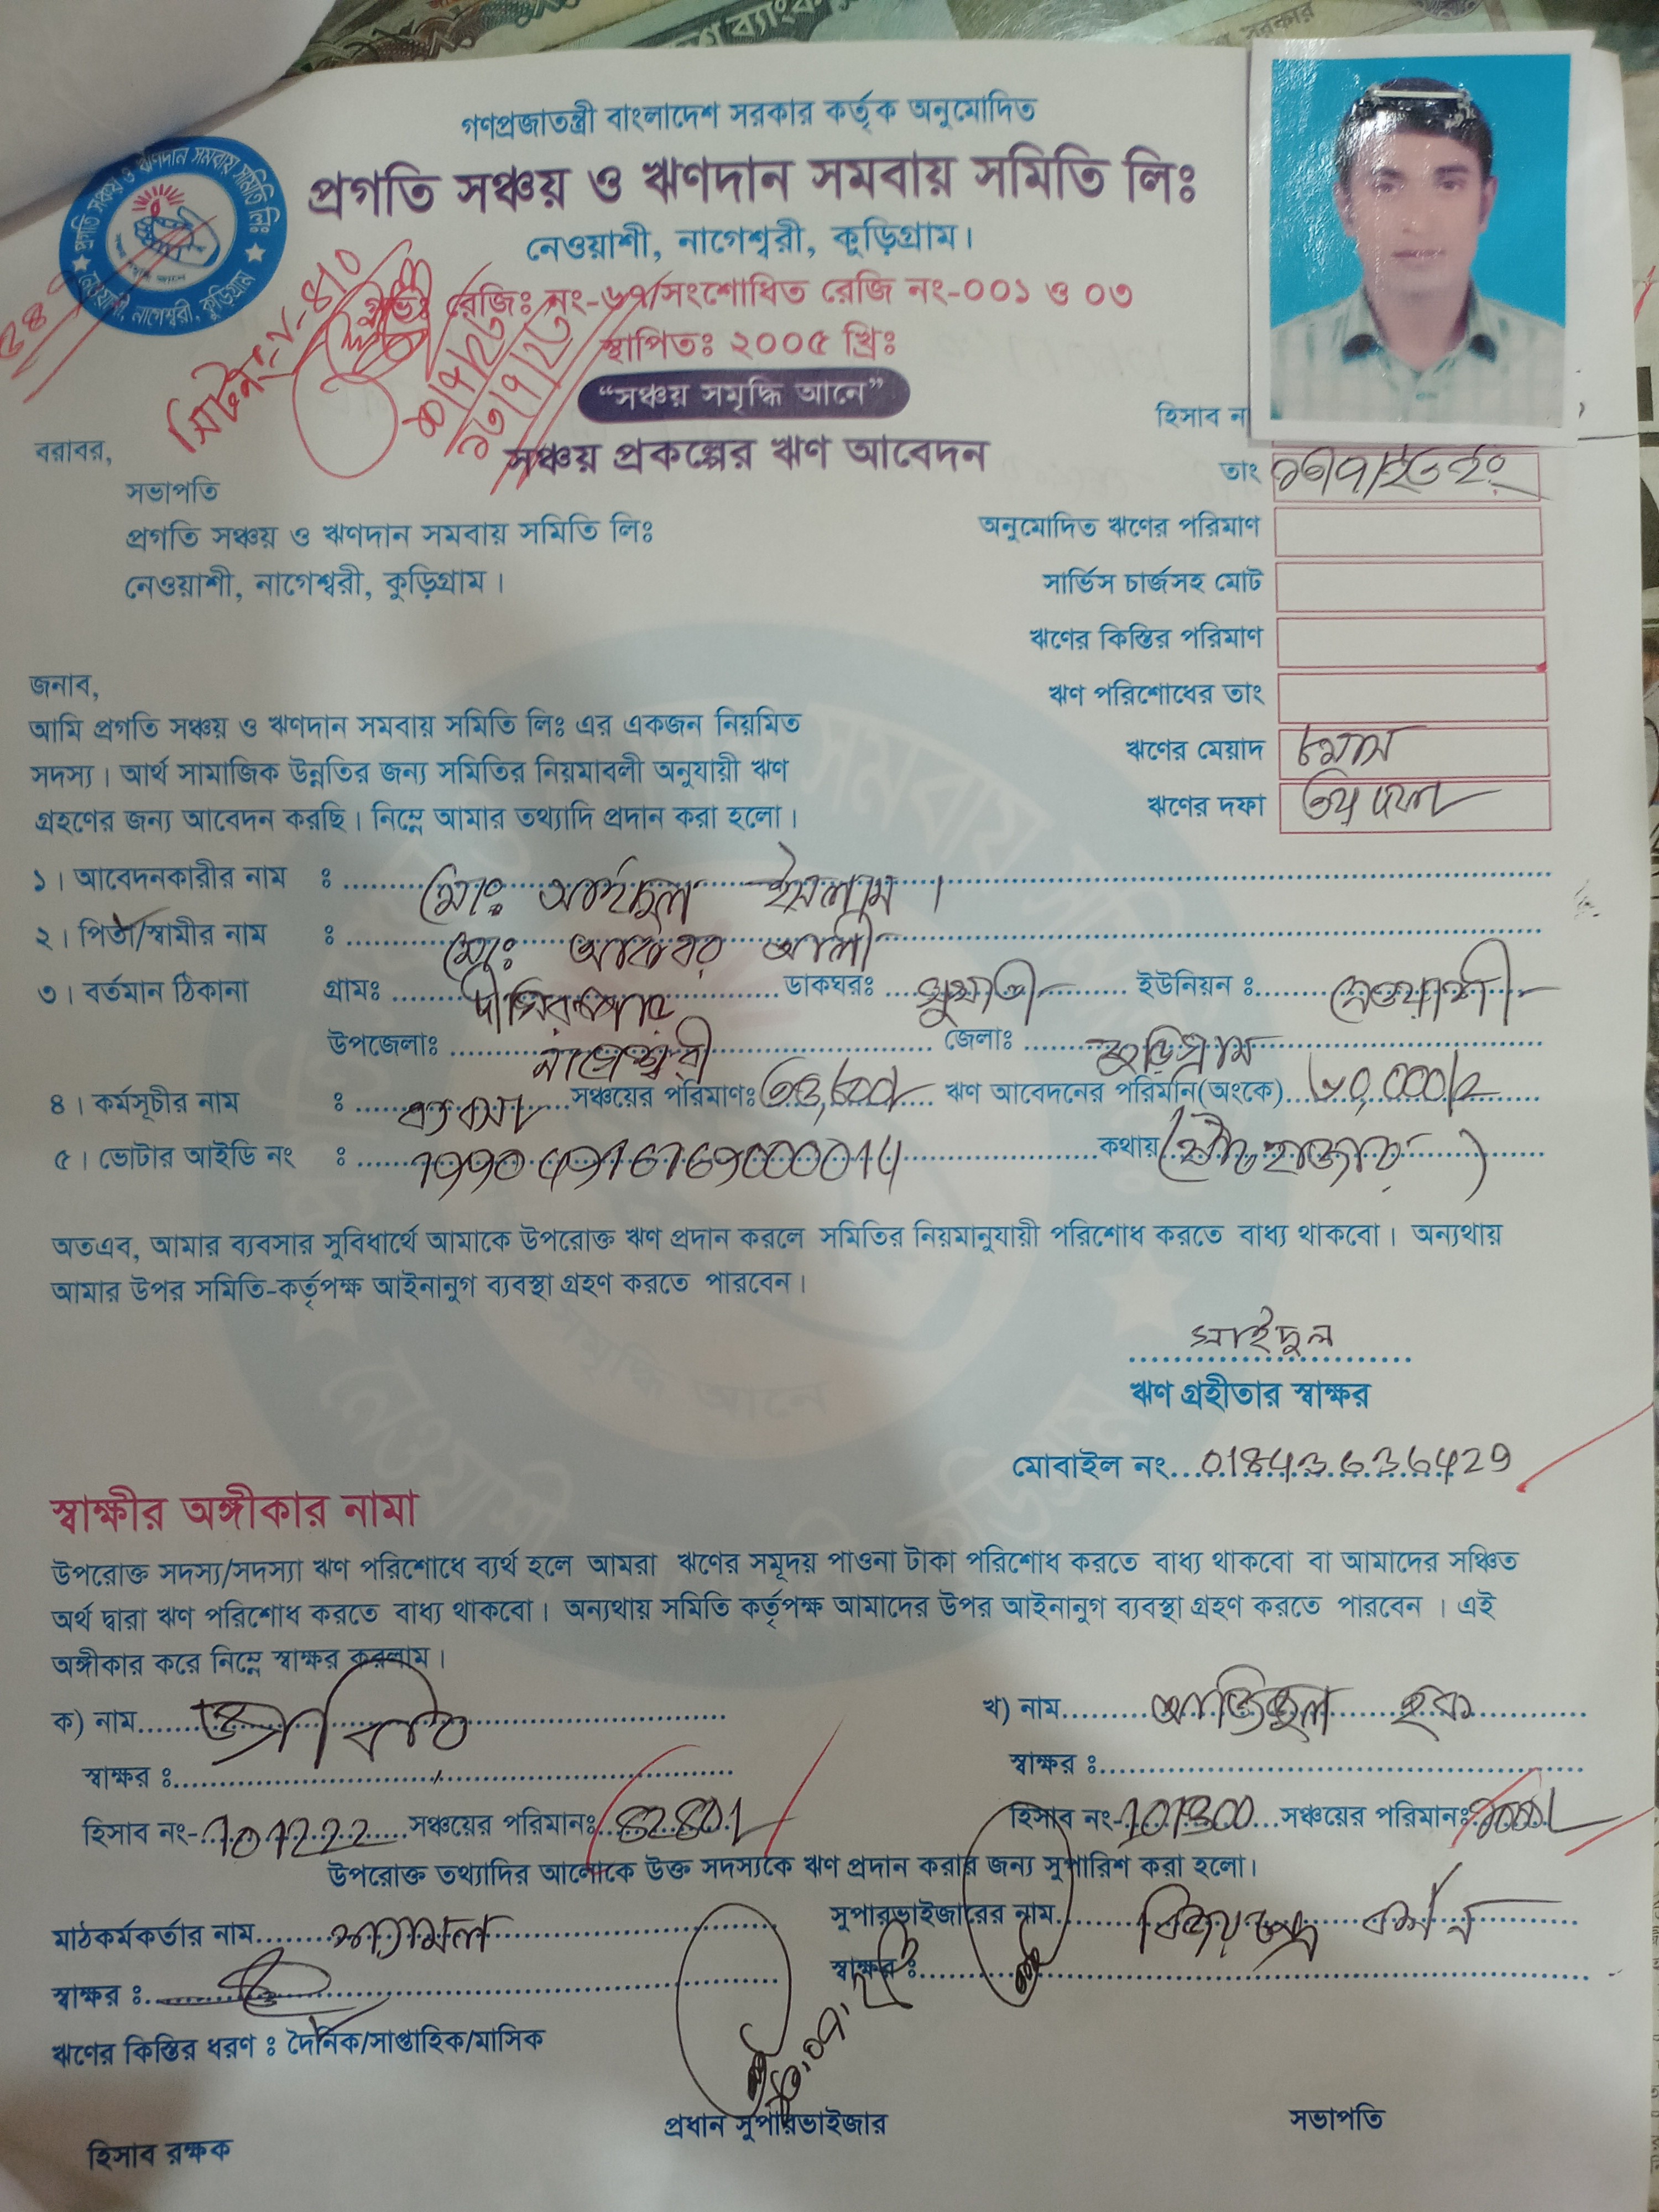 গণপ্রজাতন্ত্রী বাংলাদেশ সরকার কর্তৃক অনুমোদিত
প্রগতি সঞ্চয় ও ঋণদান সমবায় সমিতি লিঃ
নেওয়াশী, নাগেশ্বরী, কুড়িগ্রাম।
রেজিঃ নং-৬৭/সংশোধিত রেজি নং-০০১ ও ০৩
স্থাপিতঃ ২০০৫ খ্রিঃ
“সঞ্চয় সমৃদ্ধি আনে”
সঞ্চয় প্রকল্পের ঋণ আবেদন
হিসাব ন
তাং
অনুমোদিত ঋণের পরিমাণ
সার্ভিস চার্জসহ মোট
ঋণের কিস্তির পরিমাণ
ঋণ পরিশোধের তাং
ঋণের মেয়াদ ৮মাস
ঋণের দফা ৩য় দফা
বরাবর,
সভাপতি
প্রগতি সঞ্চয় ও ঋণদান সমবায় সমিতি লিঃ
নেওয়াশী, নাগেশ্বরী, কুড়িগ্রাম।
জনাব,
আমি প্রগতি সঞ্চয় ও ঋণদান সমবায় সমিতি লিঃ এর একজন নিয়মিত
সদস্য। আর্থ সামাজিক উন্নতির জন্য সমিতির নিয়মাবলী অনুযায়ী ঋণ
গ্রহণের জন্য আবেদন করছি। নিম্নে আমার তথ্যাদি প্রদান করা হলো।
১। আবেদনকারীর নাম ঃ মোঃ ইসলাম।
২। পিতা/স্বামীর নাম ঃ মোঃ আকবর আলী
৩। বর্তমান ঠিকানা গ্রামঃ ডাকঘরঃ সুখাতী ইউনিয়ন ঃ নেওয়াশী
উপজেলাঃ নাগেশ্বরী জেলাঃ কুড়িগ্রাম
৪। কর্মসূচীর নাম ঃ ব্যবসা সঞ্চয়ের পরিমাণঃ ঋণ আবেদনের পরিমান(অংকে)
৫। ভোটার আইডি নং ঃ 19904916769000014 কথায়
অতএব, আমার ব্যবসার সুবিধার্থে আমাকে উপরোক্ত ঋণ প্রদান করলে সমিতির নিয়মানুযায়ী পরিশোধ করতে বাধ্য থাকবো। অন্যথায়
আমার উপর সমিতি-কর্তৃপক্ষ আইনানুগ ব্যবস্থা গ্রহণ করতে পারবেন।
সাইদুল
ঋণ গ্রহীতার স্বাক্ষর
মোবাইল নং 01843636429
স্বাক্ষীর অঙ্গীকার নামা
উপরোক্ত সদস্য/সদস্যা ঋণ পরিশোধে ব্যর্থ হলে আমরা ঋণের সমূদয় পাওনা টাকা পরিশোধ করতে বাধ্য থাকবো বা আমাদের সঞ্চিত
অর্থ দ্বারা ঋণ পরিশোধ করতে বাধ্য থাকবো। অন্যথায় সমিতি কর্তৃপক্ষ আমাদের উপর আইনানুগ ব্যবস্থা গ্রহণ করতে পারবেন । এই
অঙ্গীকার করে নিম্নে স্বাক্ষর করলাম।
ক) নাম
খ) নাম হক
স্বাক্ষর ঃ
স্বাক্ষর ঃ
হিসাব নং- 101222 সঞ্চয়ের পরিমানঃ
হিসাব নং- 101300 সঞ্চয়ের পরিমানঃ
উপরোক্ত তথ্যাদির আলোকে উক্ত সদস্যকে ঋণ প্রদান করার জন্য সুপারিশ করা হলো।
মাঠকর্মকর্তার নাম শ্যামল
সুপারভাইজারের নাম বিজয় চন্দ্র বর্মন
স্বাক্ষর ঃ
স্বাক্ষর ঃ
ঋণের কিস্তির ধরণ ঃ দৈনিক/সাপ্তাহিক/মাসিক
হিসাব রক্ষক
প্রধান সুপারভাইজার
সভাপতি